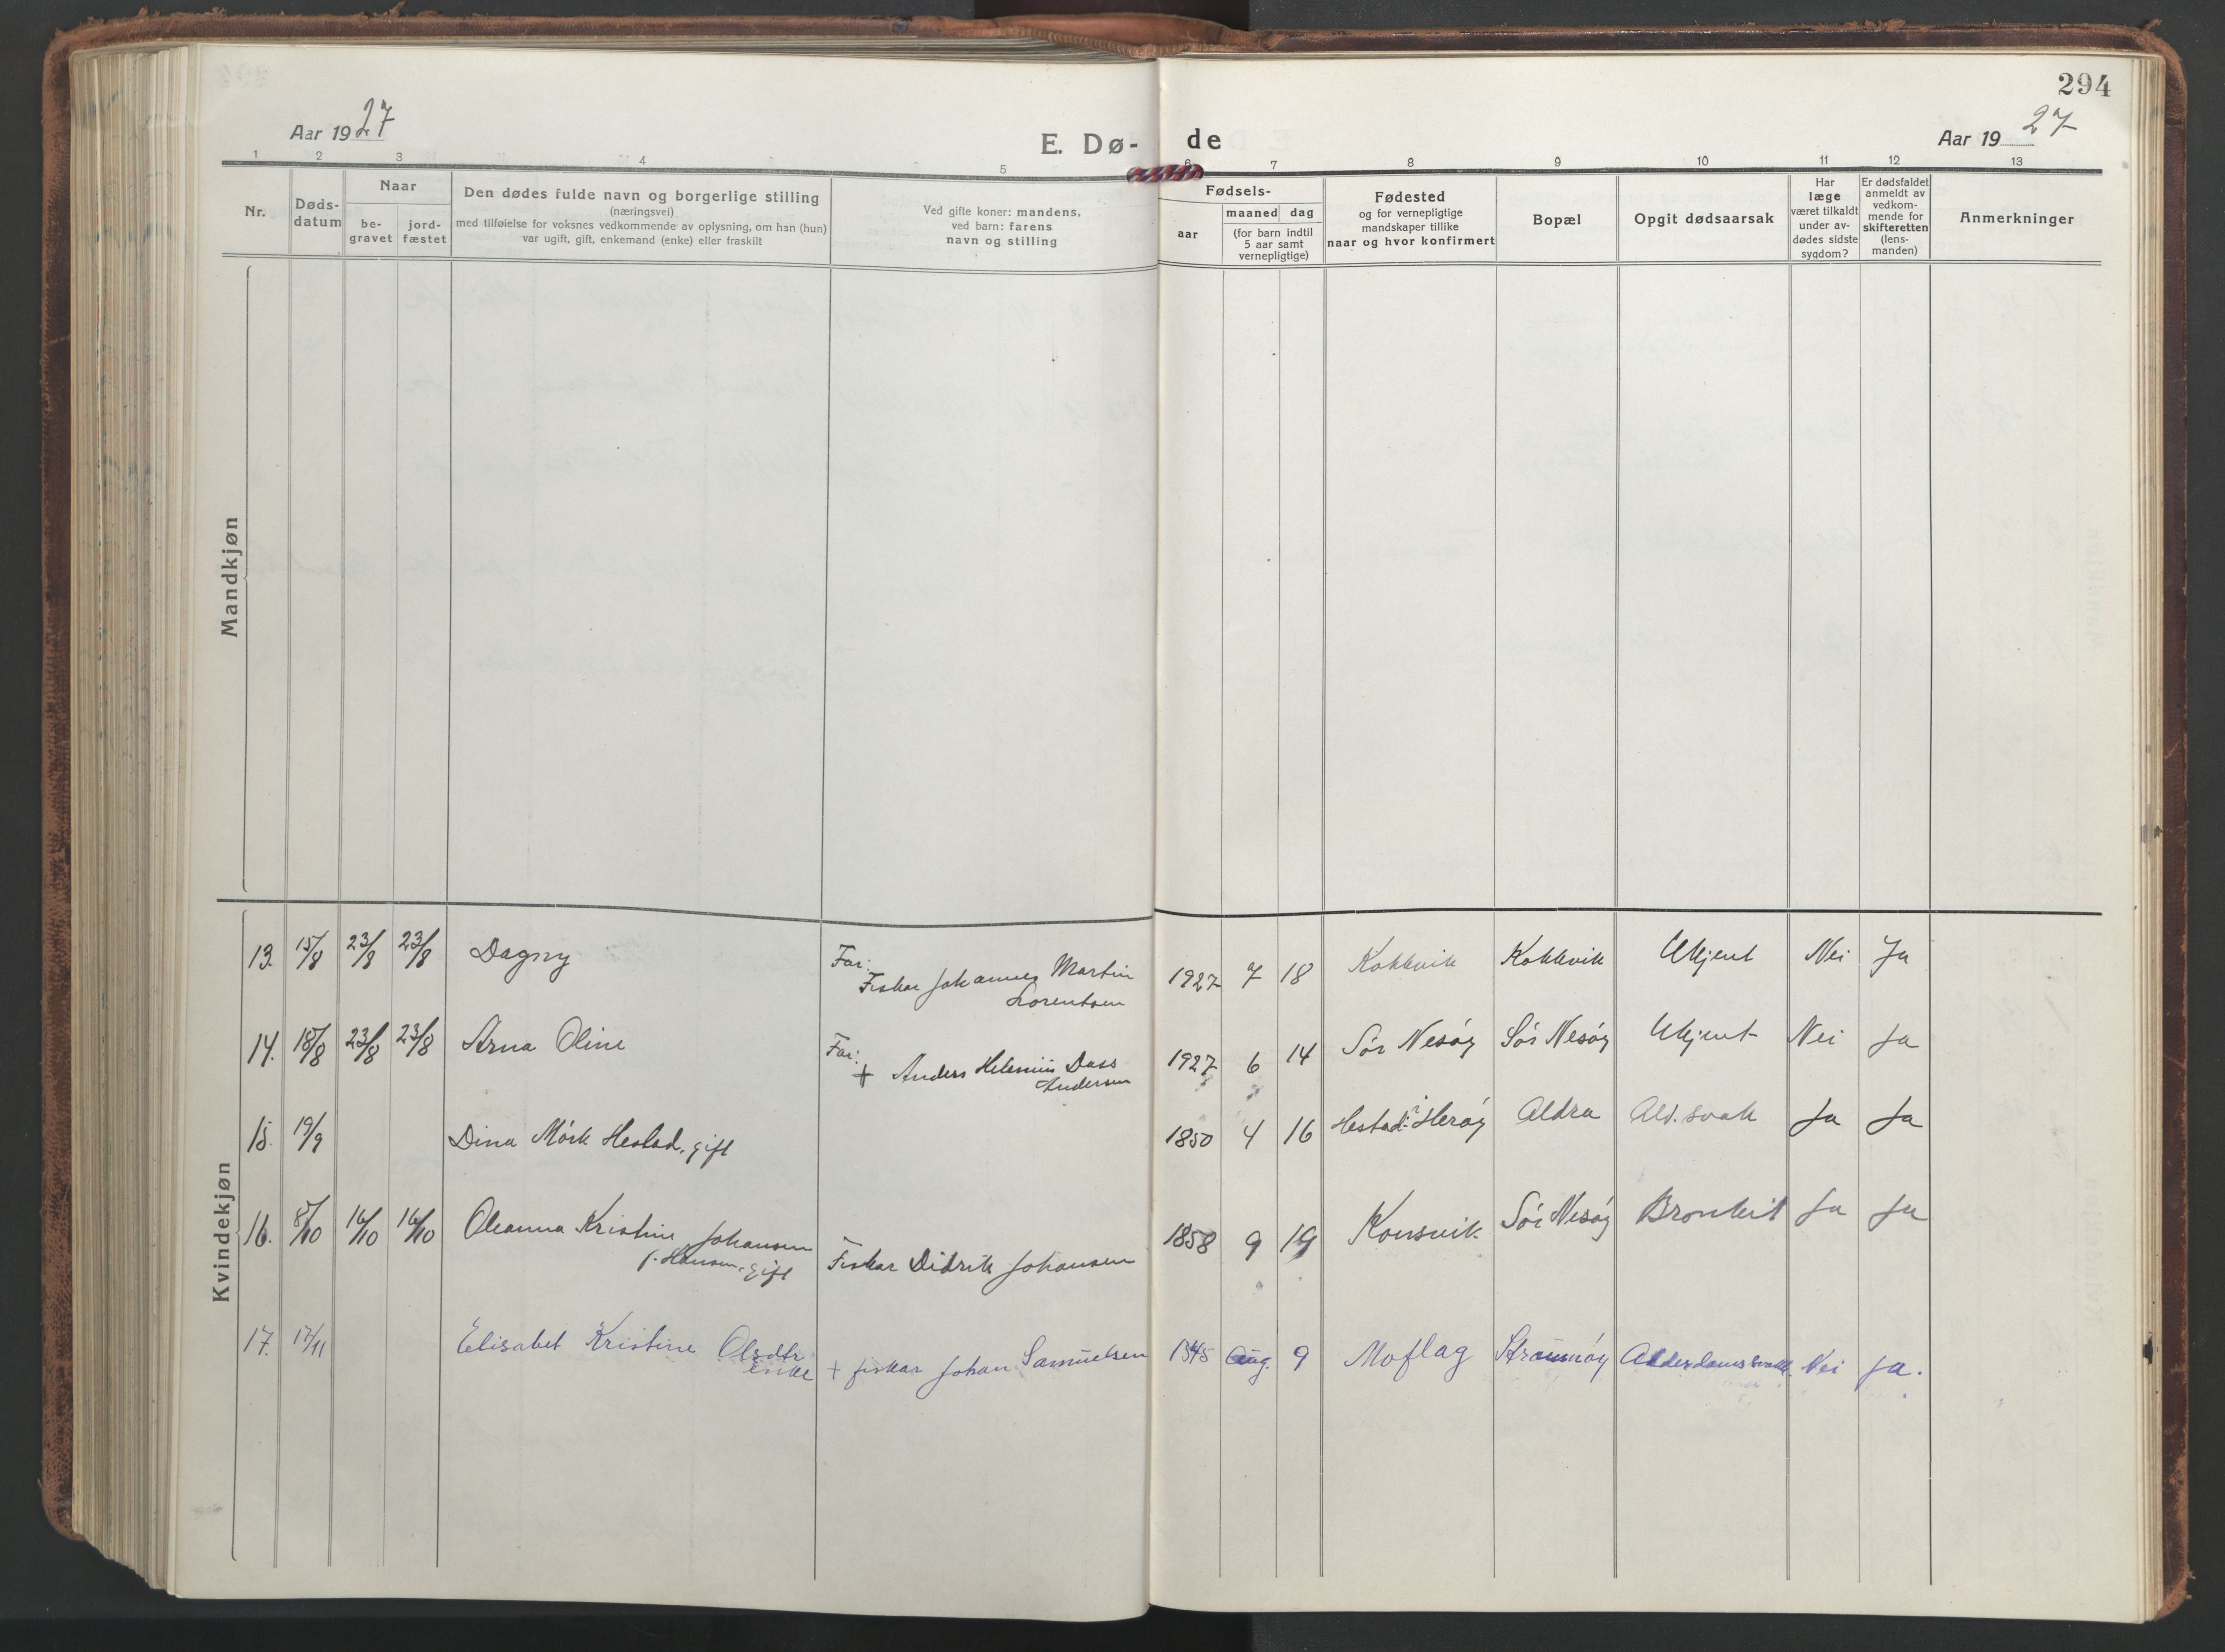 294
Aar 1927
E. Dø- de
Aar 1927
1 2 3 4 5 6 7 8 9 10 11 12 13
Nr.
Døds-
datum
Naar
be-
gravet
jord-
fæstet
Den dødes fulde navn og borgerlige stilling
(næringsvei)
med tilføielse for voksnes vedkommende av oplysning, om han (hun)
var ugift, gift, enkemand (enke) eller fraskilt
Ved gifte koner: mandens,
ved barn: farens
navn og stilling
Fødsels-
aar
maaned dag
(for barn indtil
5 aar samt
vernepligtige)
Fødested
og for vernepligtige
mandskaper tillike
naar og hvor konfirmert
Bopæl
Opgit dødsaarsak
Har
læge
været tilkaldt
under av-
dødes sidste
sygdom?
Er dødsfaldet
anmeldt av
vedkom-
mende for
skifteretten
(lens-
manden)
Anmerkninger
Mandkjøn
Kvindekjøn
13. 15/8 23/8 23/8 Dagny Far: Fiskar Johannes Martin 1927 7 18 Kokkvik Kokkvik Ukjent Nei Ja
Lorentsen
14. 18/8 23/8 23/8 Arna Oline Far: + Anders Dass 1927 6 14 Sör Nesöy Sör Nesöy Ukjent Nei Ja
Andersen
15. 19/9 Dina Mörk Hestad, gift 1850 4 16 Hestad i Heröy Aldra Ald.svak Ja Ja
16. 8/10 16/10 16/10 Oleanna Kristine Johansen 1858 9 19 Konsvik Sör Nesöy Bronkit Ja Ja
f. Hansen, gift Fiskar Didrik Johansen
17. 17/11 Elisabet Kristine Olsdtr + fiskar Johan Samuelsen 1845 Aug. 9 Moflag Straumöy Alderdomssvakk. Nei Ja.
enke